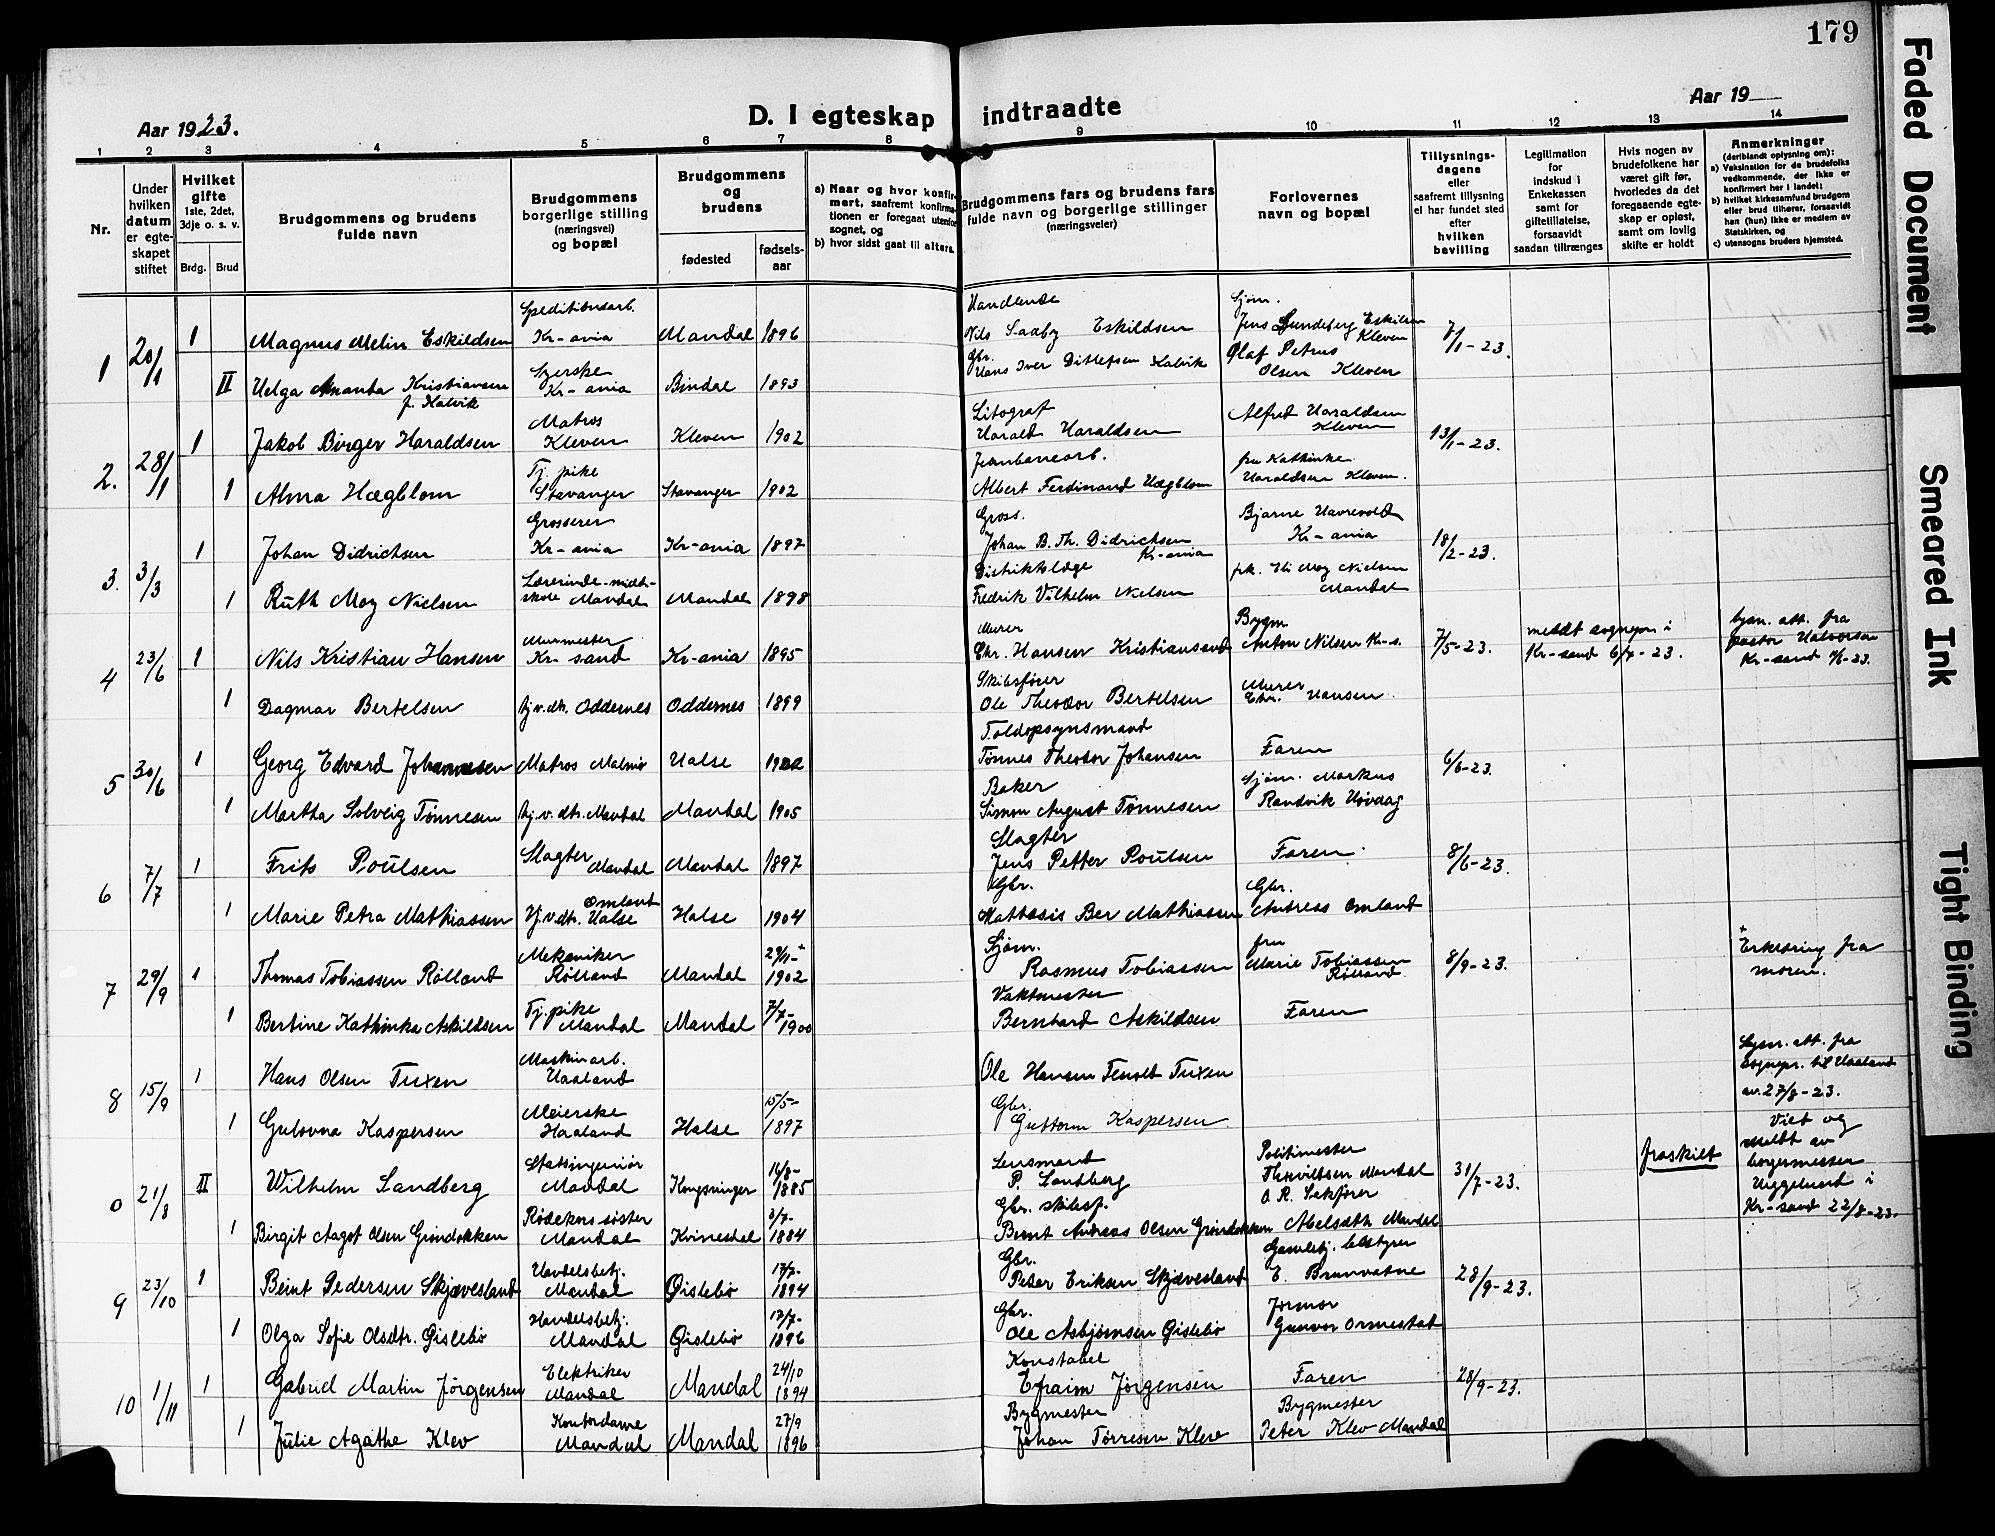 179
Aar 1923.
D. I egteskap indtraadte
Aar 19
1 2 3 4 5 6 7 8 9 10 11 12 13 14
Nr.
Under hvilken datum er egteskapet stiftet
Hvilket gifte
1ste, 2det, 3dje o. s. v.
Brdg. Brud
Brudgommens og brudens fulde navn
Brudgommens borgerlige stilling (næringsvei) og bopæl
Brudgommens og brudens
fødested
fødselsaar
a) Naar og hvor konfirmert, saafremt konfirmationen er foregaat utenfor sognet, og
b) hvor sidst gaat til alters.
Brudgommens fars og brudens fars fulde navn og borgerlige stillinger (næringsveier)
Forlovernes navn og bopæl
Tillysningsdagene eller saafremt tillysning ei har fundet sted efter hvilken bevilling
Legitimation for indskud i Enkekassen samt for giftetilladelse, forsaavidt saadan tiltrænges
Hvis nogen av brudefolkene har været gift før, hvorledes da det foregaaende egteskap er opløst, samt om lovlig skifte er holdt
Anmerkninger
(deriblandt oplysning om):
a) Vaksination for de brudefolks vedkommende, der ikke er konfirmert her i landet;
b) hvilket kirkesamfund brudgom eller brud tilhører, forsaavidt han (hun) ikke er medlem av Statskirken, og
c) utensogns bruders hjemsted.
1 20/1 1 Magnus Melin Eskildsen Speditionsarb. Kr-ania Mandal 1896 Handlende Nils Saaby Eskildsen Sjøm. Jens Lundeberg Eskilsen Kleven 7/1-23.
II Helga Amanda Kristiansen f. Kalvik Syerske Kr-ania Bindal 1893 Gbr. Hans Iver Ditlefsen Kalvik Olaf Petrus Olsen Kleven
2. 28/1 1 Jakob Birger Haraldsen Matros Kleven Kleven 1902 Litograf Harald Haraldsen Alfred Haraldsen Kleven 13/1-23.
1 Alma Hægblom Tj. pike Stavanger Stavanger 1902 Jernbanearb. Albert Ferdinand Hægblom fru Kathinka Haraldsen Kleven.
3. 3/3 1 Johan Didrichsen Grosserer Kr-ania Kr-ania 1897 Gross. Johan B. Th. Didrichsen Kr-ania Bjarne Havrevold Kr-ania 18/2-23.
1 Ruth Moy Nielsen Lærerinde-midt-skole Mandal Mandal 1898 Distriktslæge Fredrik Vilhelm Nielsen frk. Moy Nielsen Mandal
4 23/6 1 Nils Kristian Hansen Murmester Kr-sand Kr-ania 1895 Murer Chr. Hansen Kristiansand Bygm. Anton Nilsen Kr-s. 7/5-23. meldt sognepr i Kr-sand 6/7-23. lysn. att. fra pastor Halvorsen Kr-sand
1 Dagmar Bertelsen Hj.v.dtr. Oddernes Oddernes 1899 Skibsfører Ole Theodor Bertelsen Murer Chr. Hansen.
5 30/6 1 Georg Edvard Johannesen Matros Malmø Halse Toldopsynsmand Tønnes Theodor Johansen Faren 6/6-23.
1 Martha Solveig Tønnesen Hj.v.dtr. Mandal Mandal 1905 Baker Simon August Tønnesen Sjøm. Markus Randvik
6 7/7 1 Frits Poulsen Slagter Mandal Mandal 1897 Slagter Jens Petter Poulsen Faren. 8/6-23.
1 Marie Petra Mathiassen Hj.v.dtr. Omland Halse Halse 1904 Gbr. Mattæsis Ber Mathiassen Gbr. Andreas Omland
7 29/9 1 Thomas Tobiassen Rølland Mekaniker Rølland Mandal 29/11- + 1902 Sjøm. Rasmus Tobiassen fru Marie Tobiassen Rølland 8/9-23. + Erklæring fra moren.
1 Bertine Kathinka Askildsen Tj. pike Mandal Mandal 7/7-1900 Vaktmester Bernhard Askildsen Faren
8 15/9 1 Hans Olsen Tuxen Maskinarb. Haaland Ole Hansen Tuxen Lysn. att. fra sognepr. til Haaland av. 27/8-23.
1 Gulovna Kaspersen Meierske Haaland Halse 15/5-1897 Gbr. Guttorm Kaspersen
0 21/8 II Wilhelm Sandberg Statsingeniør Mandal Kongsvinger 16/8-1885 Lensmand P. Sandberg Politimester Thorvildsen Mandal O. R. Sakfører 31/7-23. fraskilt Viet og meldt av borgermester Uggelund i Kr-sand 22/8-23.
1 Birgit Aagot Olsen Grøndokken Rødekors søster Mandal Kvinesdal 3/7-1884 Gbr. skibsf. Bernt Andreas Olsen Grøndokken Abelseth Mandal
9 23/10 1 Beint Pedersen Skjævesland Handelsbetj. Mandal Øislebø 17/7-1894 Gbr. Peder Eriksen Skjævesland Gamlehj. bestyrer E. Brunvatne 28/9-23.
1 Olga Sofie Olsdtr. Øislebø Handelsbetj. Mandal Øislebø 13/7-1896 Gbr. Ole Asbjørnsen Øislebø Jormor Gunvor Ormestad
10 1/11 1 Gabriel Martin Jørgensen Elektriker Mandal Mandal 24/10 1894 Konstabel Efraim Jørgensen Faren 28/9-23.
1 Julie Agathe Klev Kontordame Mandal Mandal 27/9 1896 Bygmester Johan Tørresen Klev Bygmester Peter Klev Mandal
Faded Document
Smeared Ink
Tight Binding